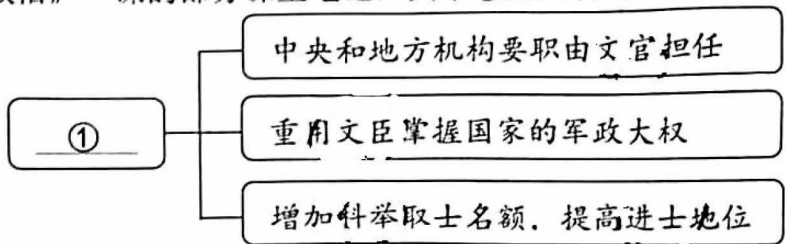 中央和地方机构要职由文官担任
①
重用文臣掌握国家的军政大权
增加科举取士名额，提高进士地位